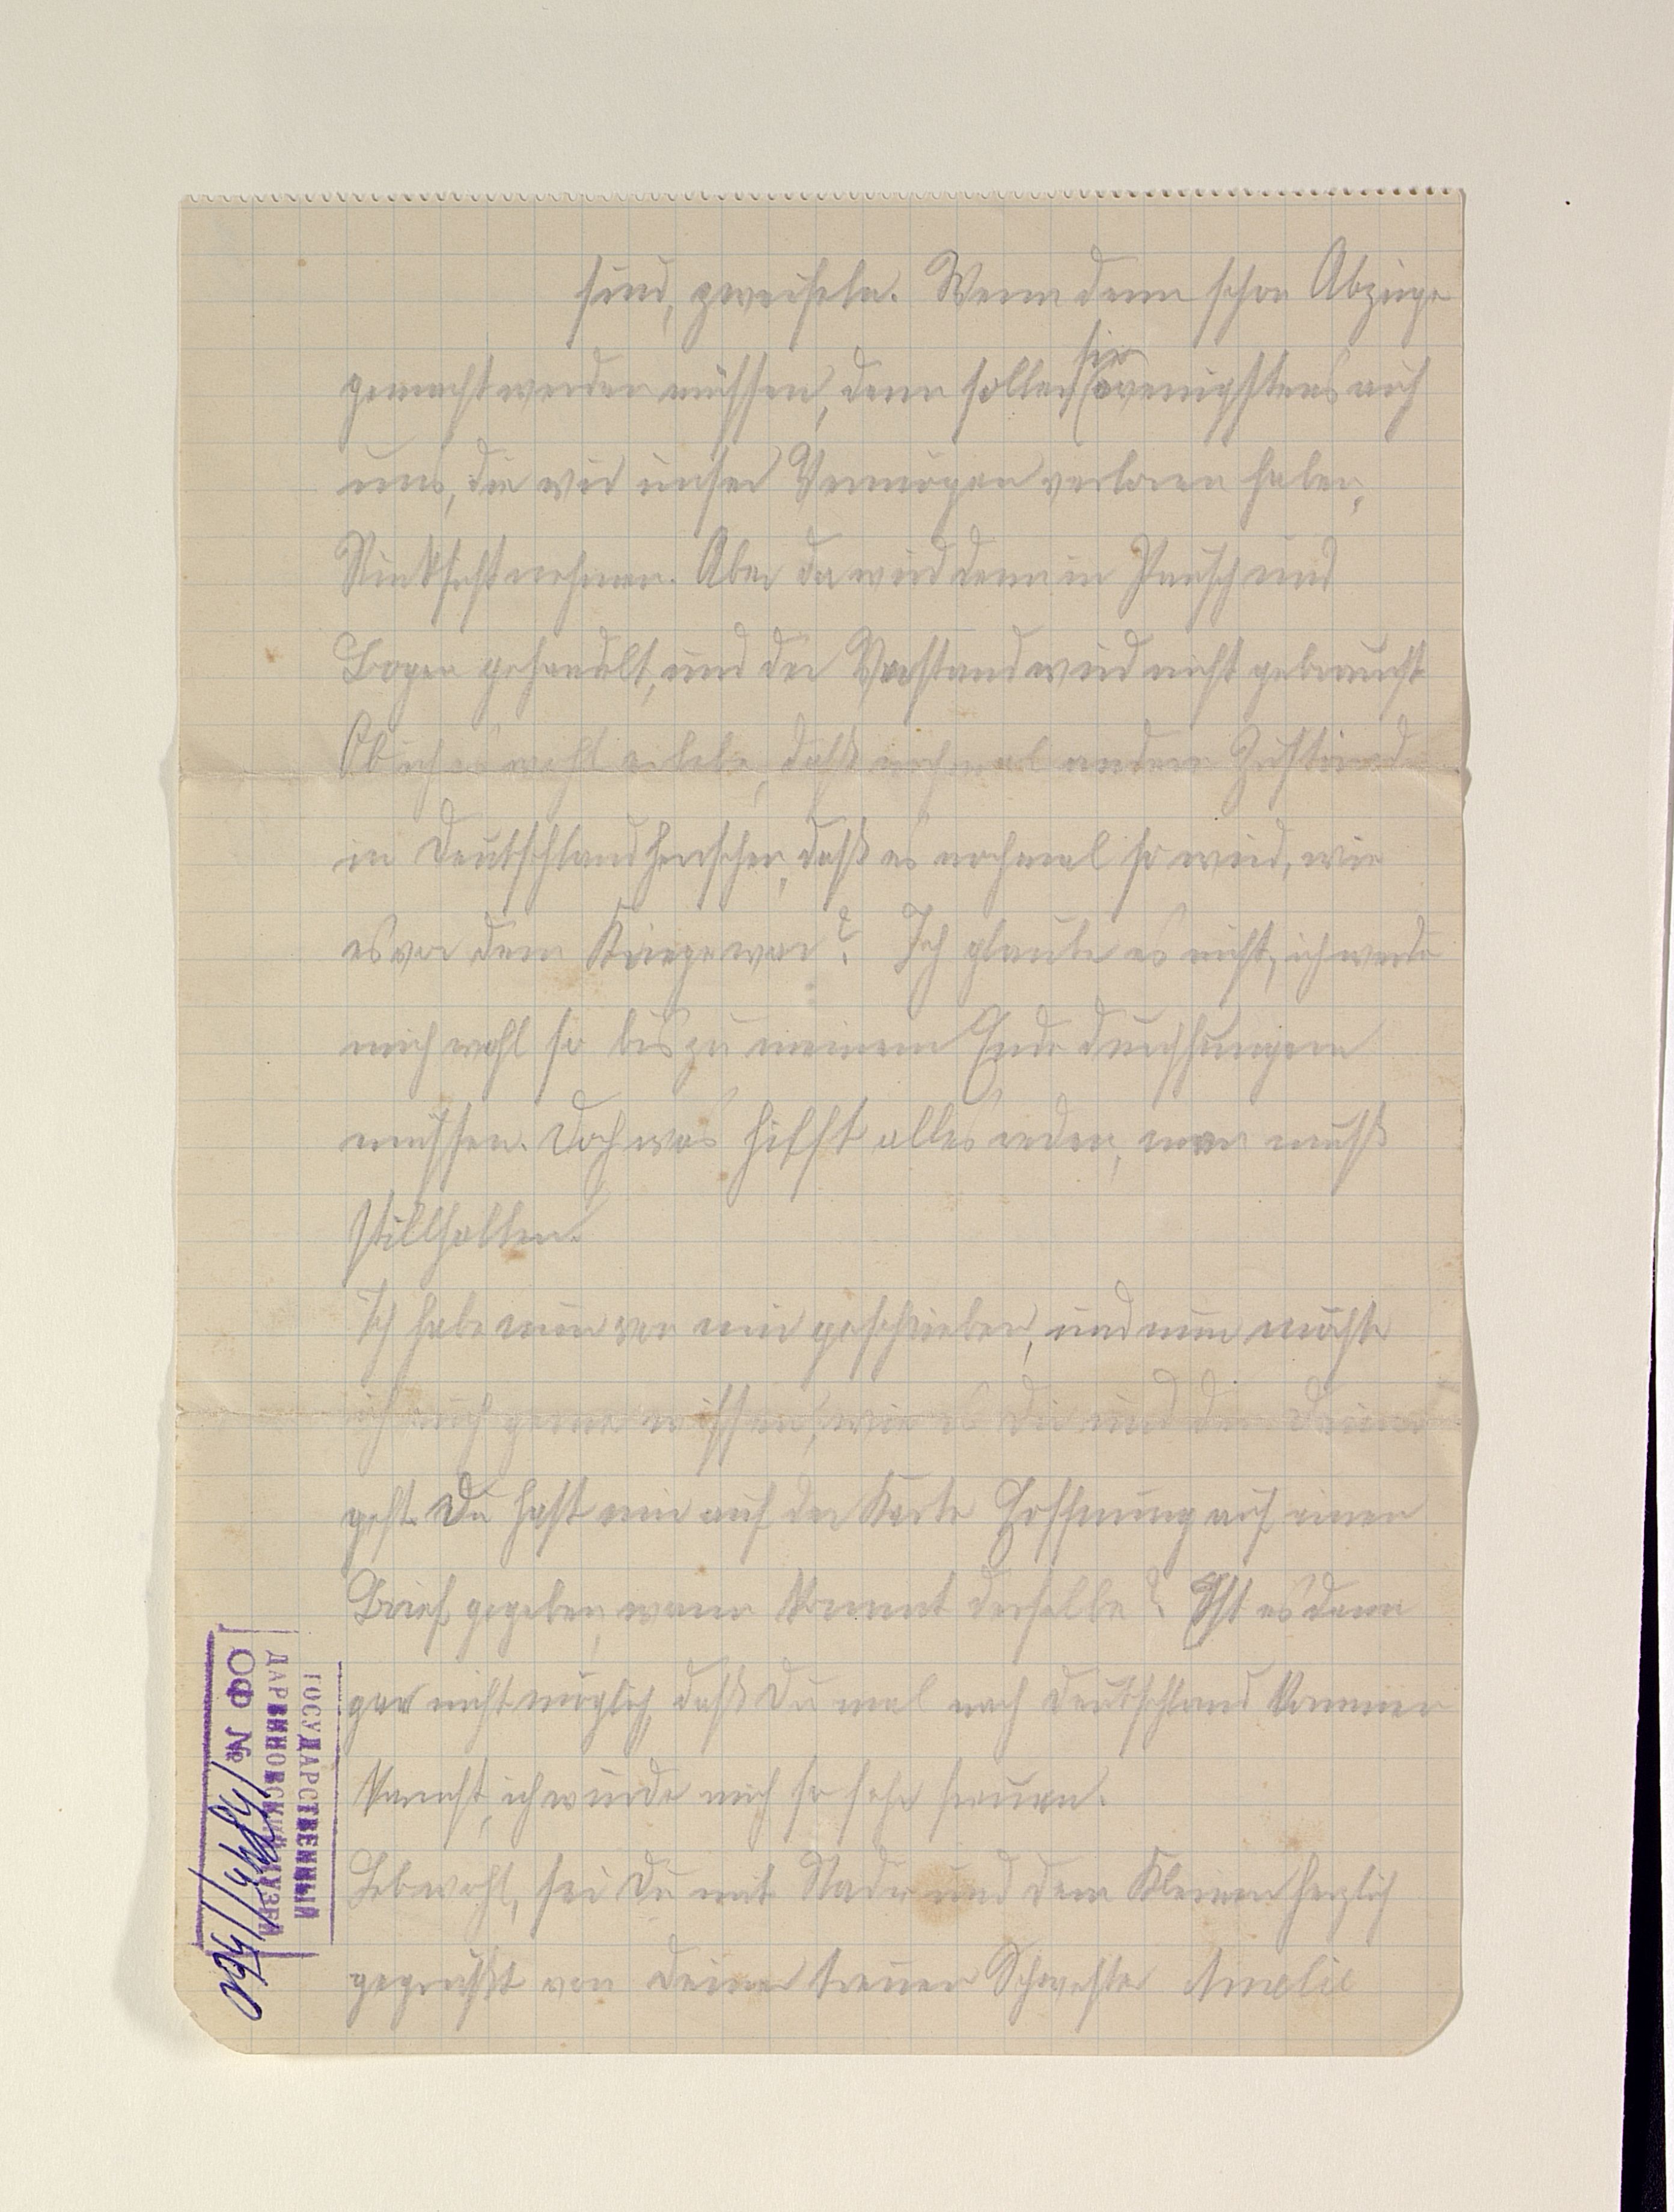 sind, zweifeln. Wenn denn schon Abzüge
gemacht werden müssen, dann sollen sie wenigstens auf
uns, die wir unser Vermögen verloren haben,
Rücksicht nehmen. Aber da wird dann in Pausch und
Bogen gehandelt, und der Verstand wird nicht gebraucht
Ob ich es wohl erlebe, daß nochmal andere Zustände
in Deutschland herrschen, daß es nochmal so wird, wie
es vor dem Kriege war? Ich glaube es nicht, ich werde
mich wohl so bis zu meinem Ende durchhungern
müssen. Doch was hilft alles reden, man muß
stillhalten.
Ich habe nun von mir geschrieben, und nun möchte
ich auch gerne wissen, wie es Dir und den Deinen
geht. Du hast mir auf der Karte Hoffnung auf einen
Brief gegeben, wann kommt derselbe? Ist es denn
gar nicht möglich, daß Du mal nach Deutschland kommen
kannst, ich würde mich so sehr freuen.
Lebwohl, sei Du mit Nadia und dem Kleinen herzlich
gegrüßt von Deiner treuen Schwester Amelie
ГОСУДАРСТВЕННЫЙ
ДАРВИНОВСКИЙ МУЗЕЙ
ОФ №